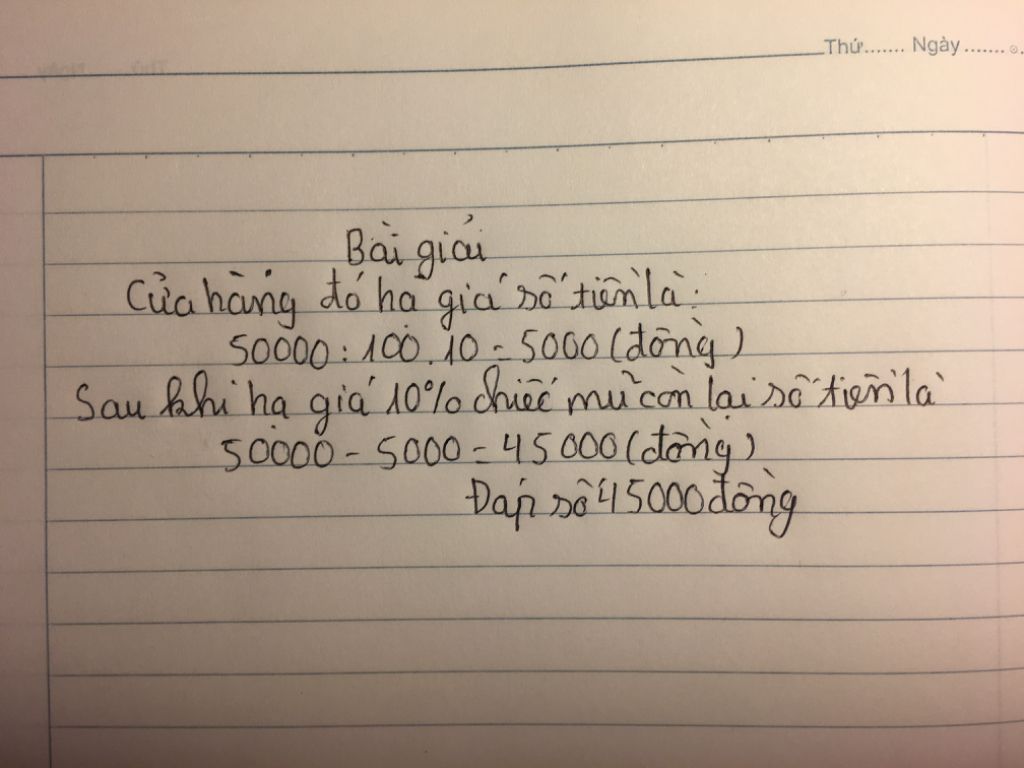 Thứ....... Ngày.......
Bài giải
Cửa hàng đó hạ giá số tiền là:
50000 : 100 . 10 = 5000 (đồng)
Sau khi hạ giá 10% chiếc mũ còn lại số tiền là
50000 - 5000 = 45000 (đồng)
Đáp số 45000 đồng